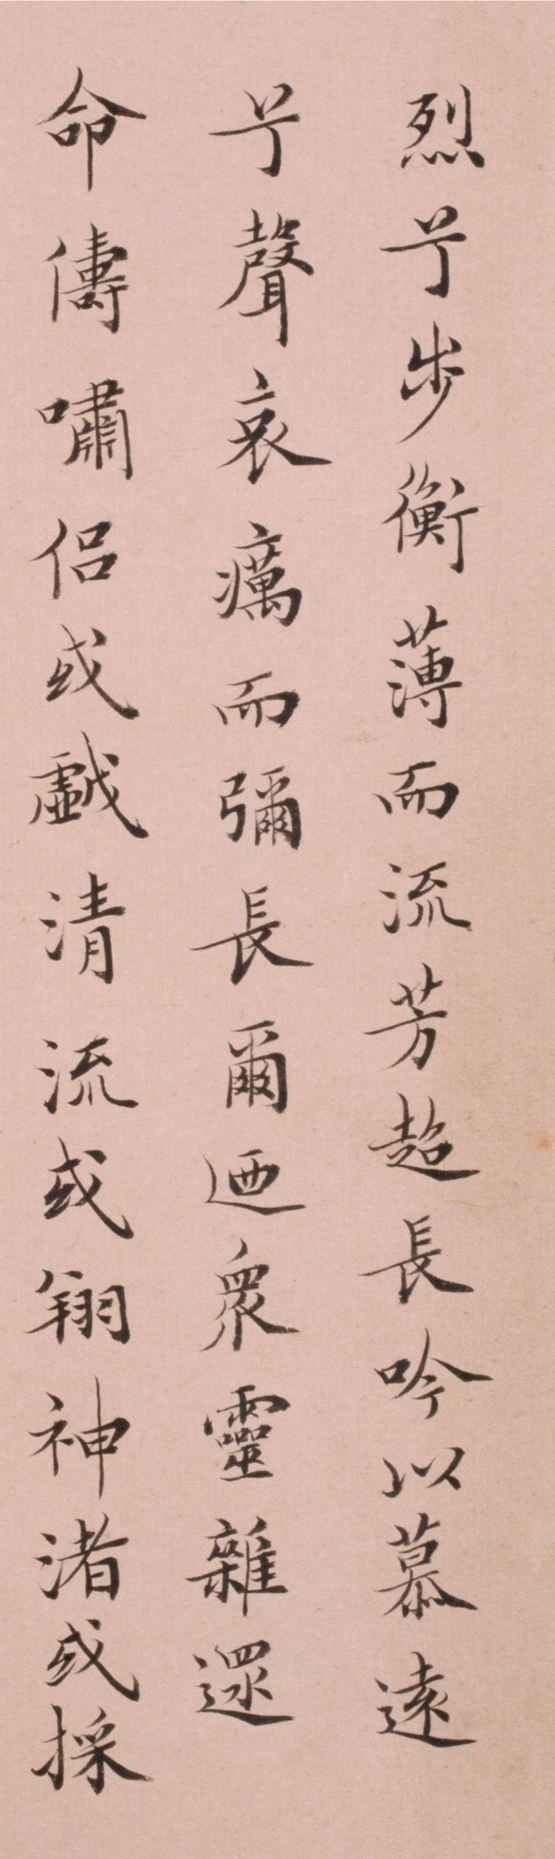 烈兮步衡薄而流芳超長吟以慕遠
兮聲哀癘而彌長爾迺衆靈雜遝
命儔嘯侶或戲清流或翔神渚或採